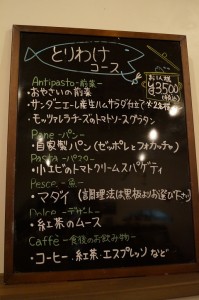 とりわけ
コース
お1人様
¥3500
(税込)
Antipasto -前菜-
・おやさいの前菜
・サンダニエーレ産生ハムサラダ仕立て ※2名様
・モッツァレラチーズのトマトソースグラタン
Pane -パン-
・自家製パン(ゼッポレとフォカッチャ)
Pasta -パスタ-
・小エビのトマトクリームスパゲティ
Pesce -魚-
・マダイ (調理法は黒板よりお選び下さい)
Dolce -デザート-
・紅茶のムース
Caffè -食後のお飲み物-
・コーヒー・紅茶・エスプレッソなど